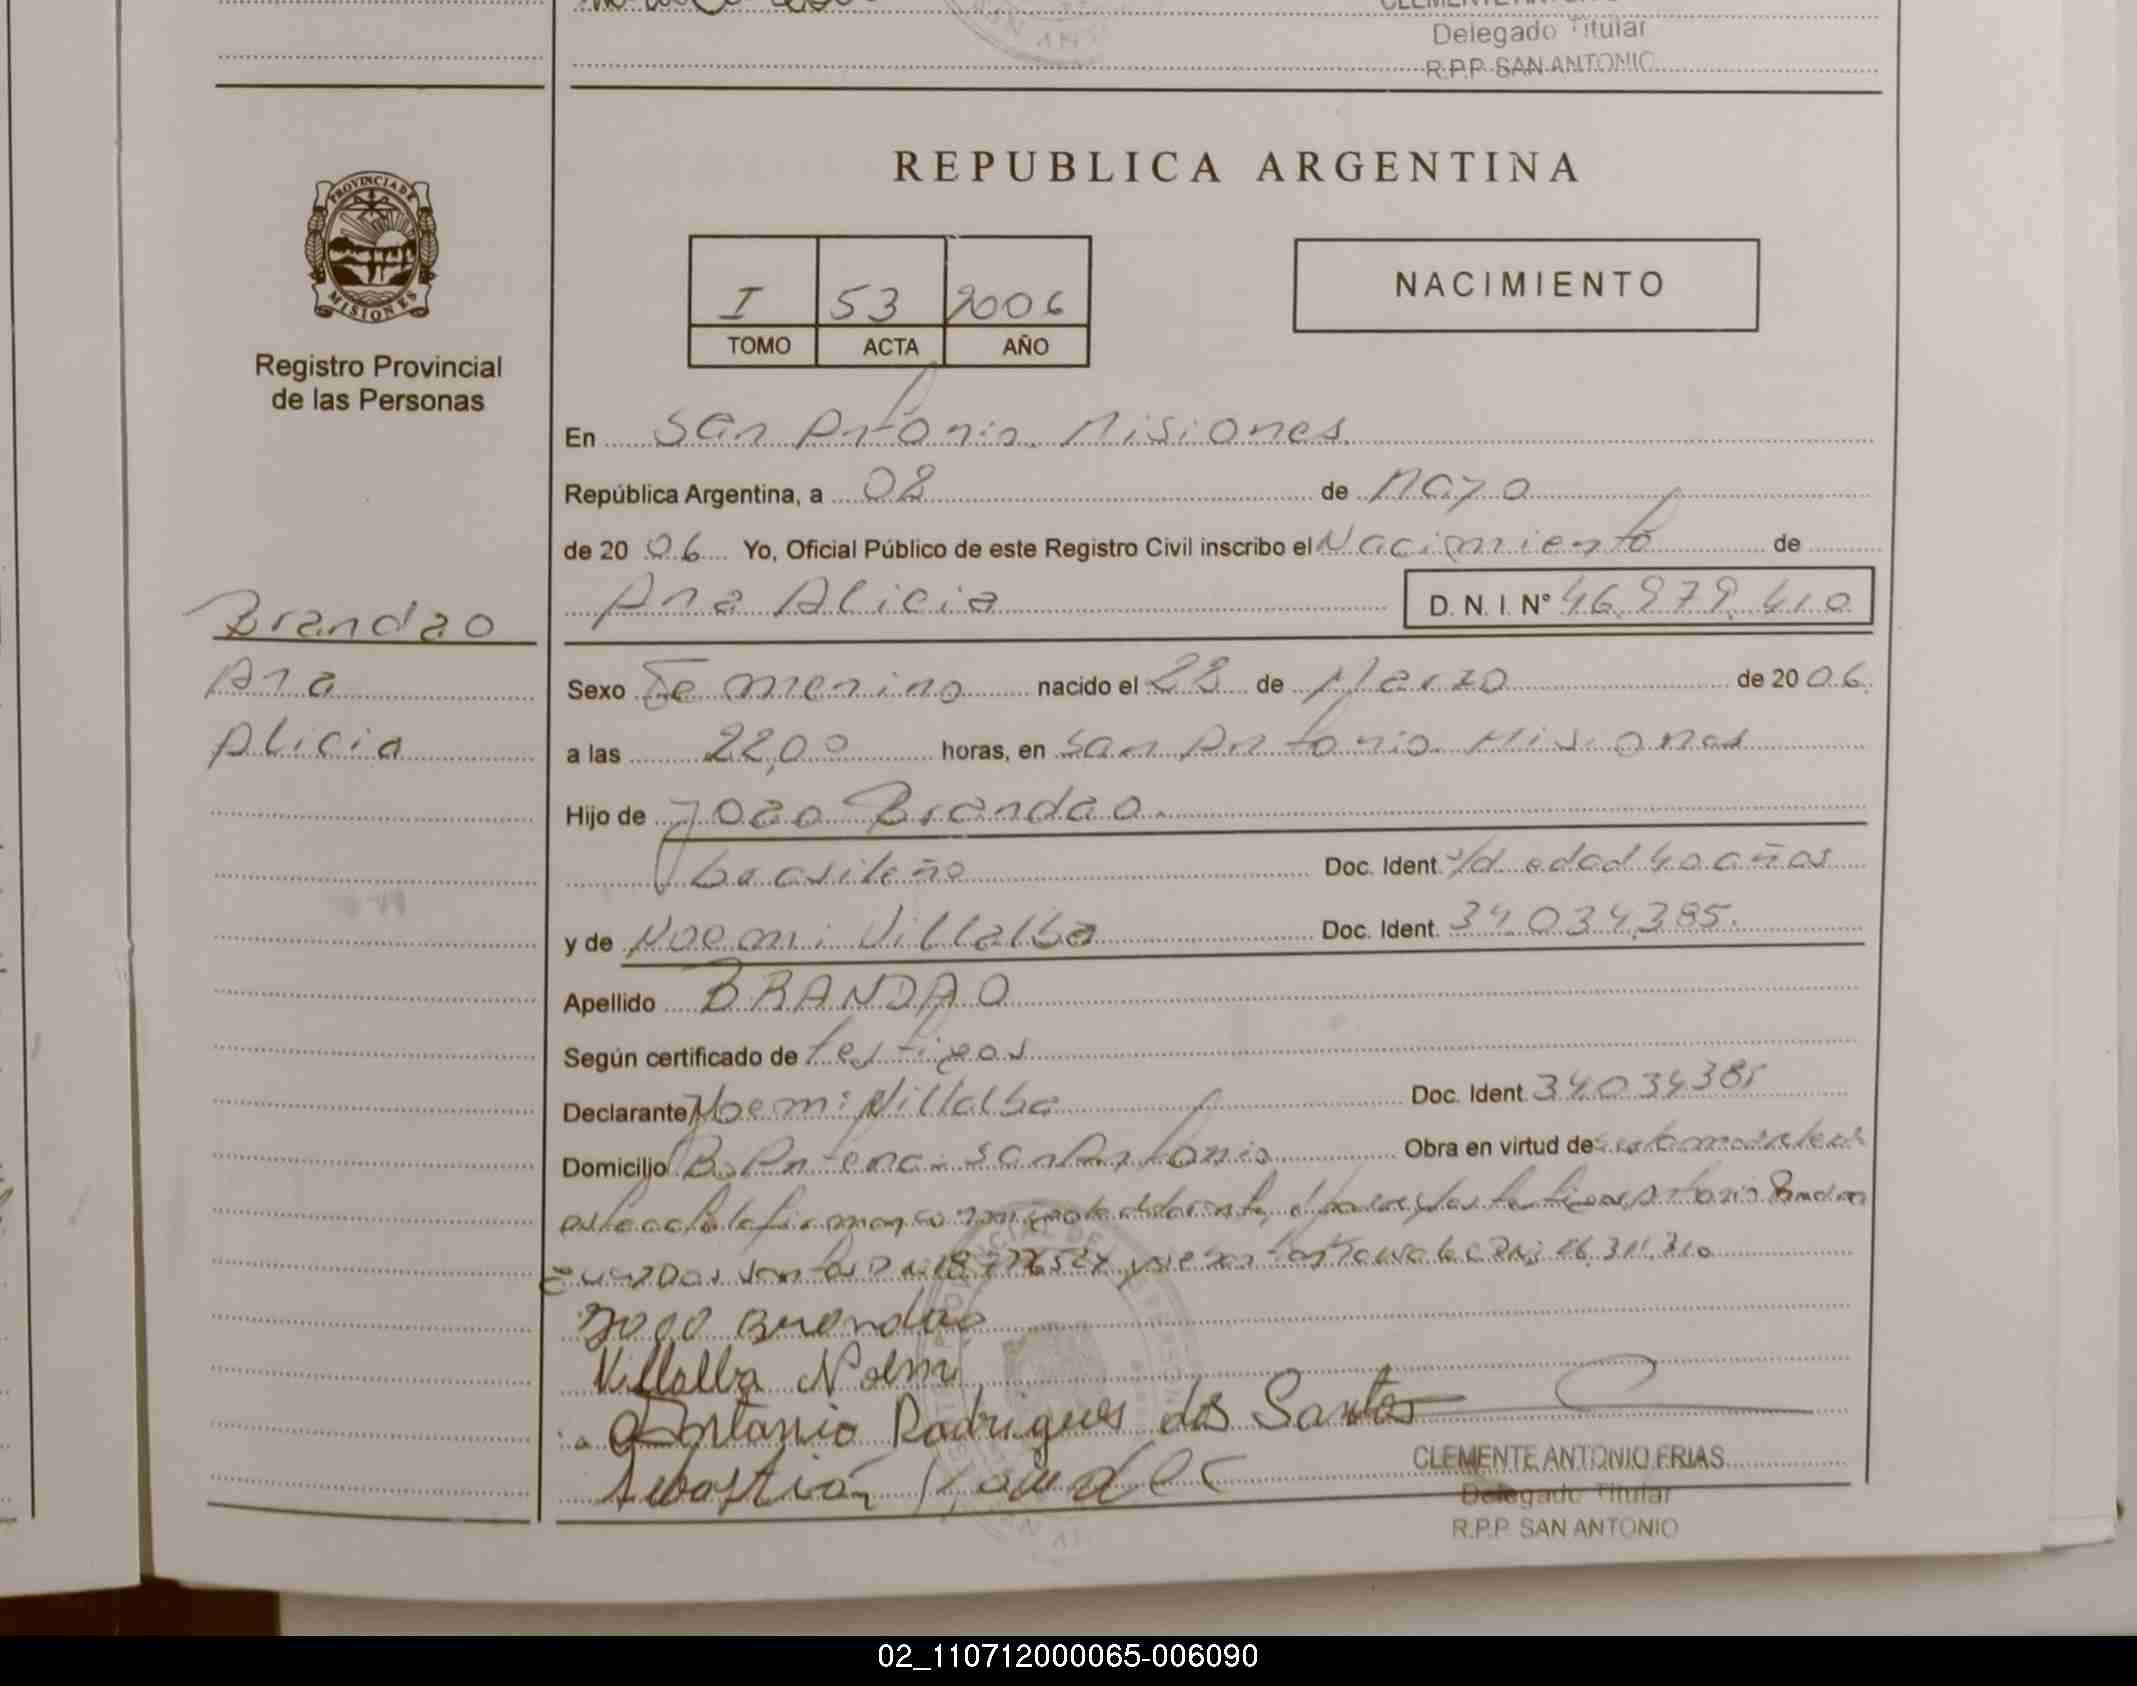 Delegado Titular
R.P.P. SAN ANTONIO
REPUBLICA ARGENTINA
PROVINCIA DE
MISIONES
I 53 2006
TOMO ACTA AÑO
NACIMIENTO
Registro Provincial
de las Personas
En San Antonio Misiones
República Argentina, a 08 de Mayo
de 20 06 Yo, Oficial Público de este Registro Civil inscribo el Nacimiento de
Ana Alicia D. N. I. N° 46.979.410
Brandao
Ana
Alicia
Sexo Femenino nacido el 28 de Marzo de 20 06
a las 22,00 horas, en San Antonio Misiones
Hijo de Joao Brandao
brasileño Doc. Ident. edad 40 años
y de Noemi Villalba Doc. Ident. 34.034.385.
Apellido BRANDAO
Según certificado de testigos
Declarante Noemi Villalba Doc. Ident. 34034385
Domicilio San Antonio Obra en virtud de
Joao Brandao
Villalba Noemi
Antonio Rodrigues dos Santos
Sebastián
CLEMENTE ANTONIO FRIAS
Delegado Titular
R.P.P. SAN ANTONIO
02_110712000065-006090